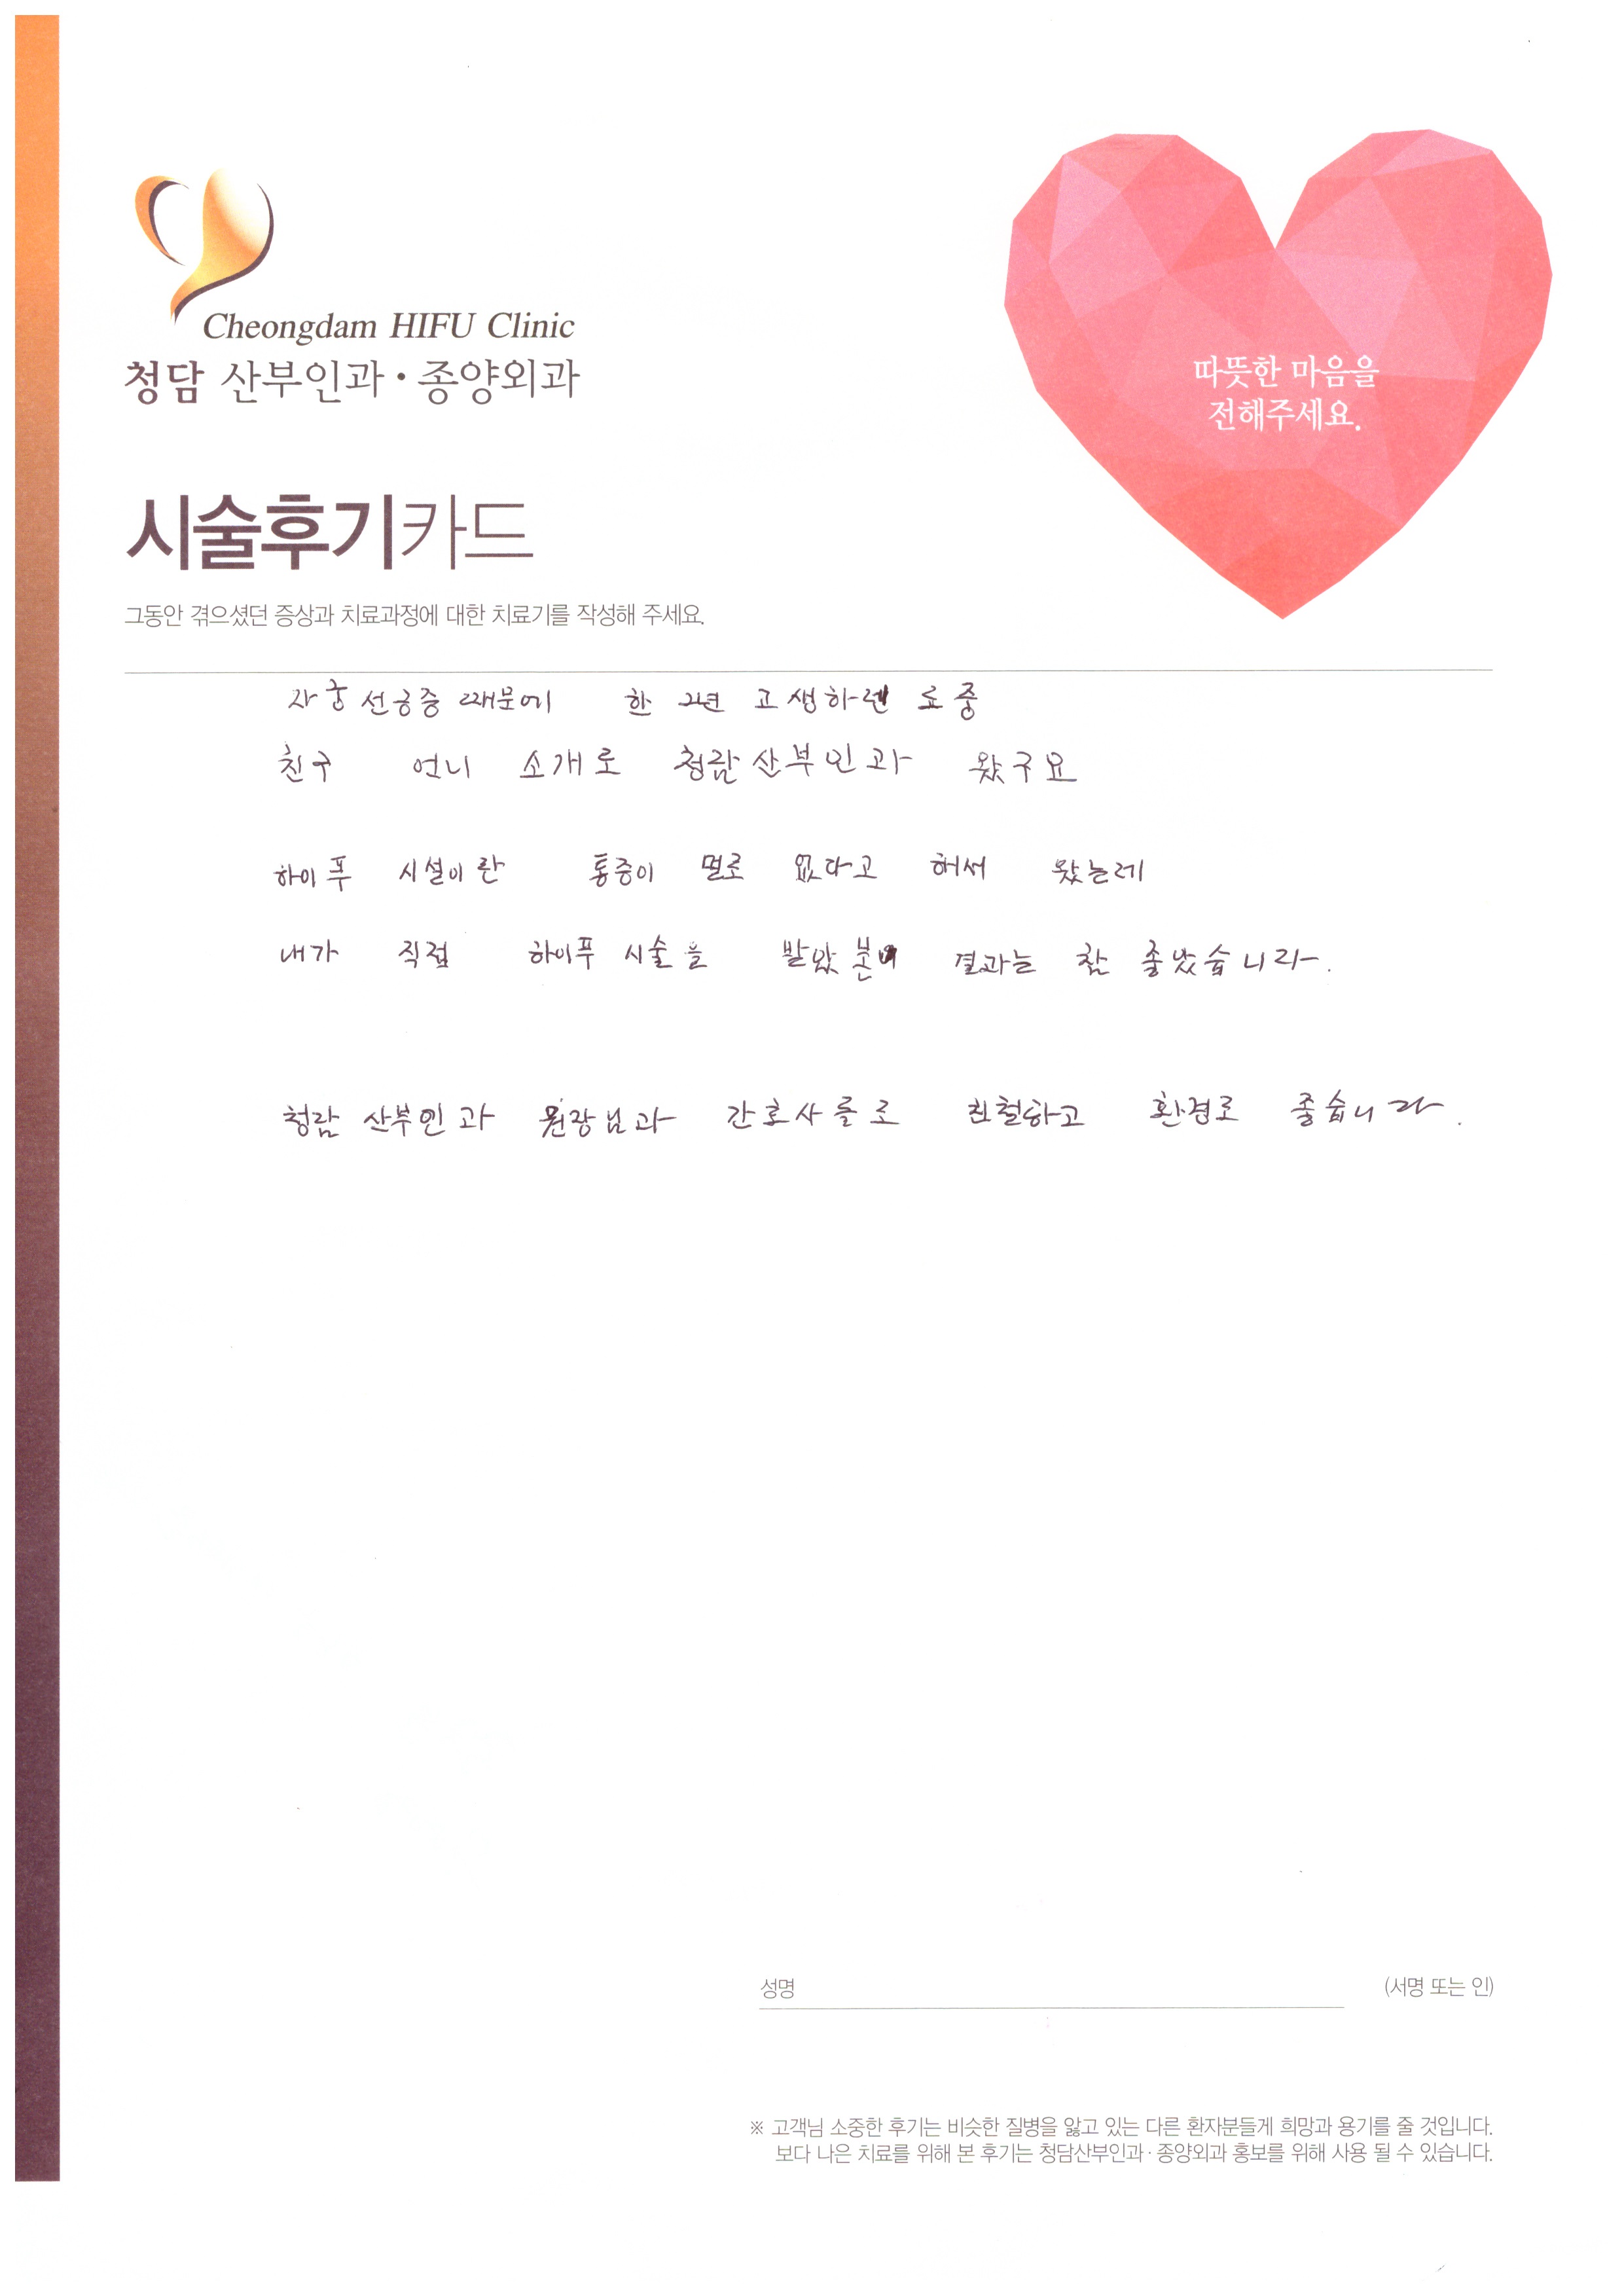 Cheongdam HIFU Clinic
청담 산부인과·종양외과
따뜻한 마음을
전해주세요.
시술후기카드
그동안 겪으셨던 증상과 치료과정에 대한 치료기를 작성해 주세요.
자궁선근증 때문에 한 2년 고생하던 도중
친구 언니 소개로 청담산부인과 왔구요
하이푸 시설이란 통증이 별로 없다고 해서 왔는데
내가 직접 하이푸 시술을 받았 결과는 참 좋았습니다.
청담 산부인과 원장님과 간호사들로 친철하고 환경로 좋습니다.
성명
(서명 또는 인)
※ 고객님 소중한 후기는 비슷한 질병을 앓고 있는 다른 환자분들게 희망과 용기를 줄 것입니다.
보다 나은 치료를 위해 본 후기는 청담산부인과·종양외과 홍보를 위해 사용 될 수 있습니다.